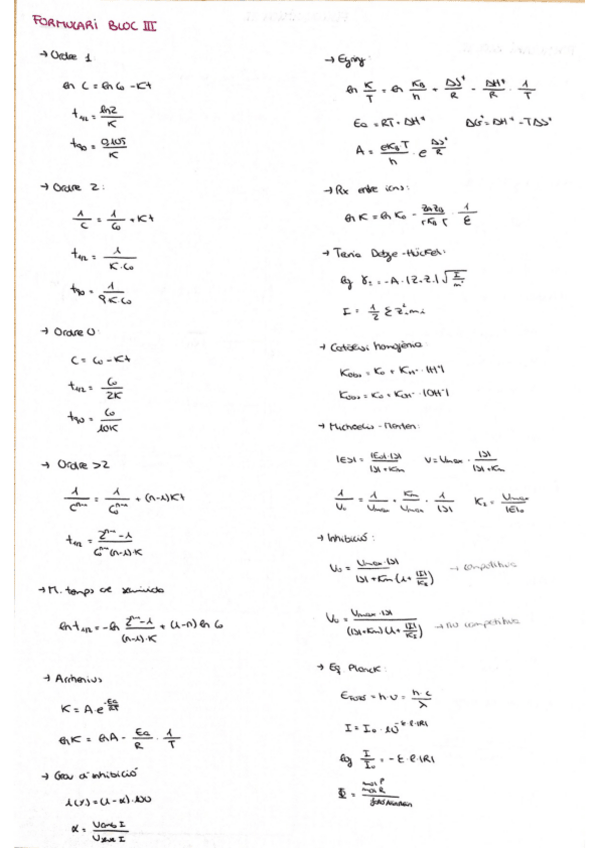 FORMULARI BLOC III
→ Ordre 1
ln C = ln C₀ - Kt
t₁/₂ = ln2 / K
t₉₀ = 0.105 / K
→ Ordre 2:
1/C = 1/C₀ + Kt
t₁/₂ = 1 / K·C₀
t₉₀ = 1 / 9K·C₀
→ Ordre 0:
C = C₀ - Kt
t₁/₂ = C₀ / 2K
t₉₀ = C₀ / 10K
→ Ordre >2
1/Cⁿ⁻¹ = 1/C₀ⁿ⁻¹ + (n-1)Kt
t₁/₂ = 2ⁿ⁻¹ - 1 / C₀ⁿ⁻¹(n-1)·K
→ M. temps de semivida
ln t₁/₂ = -ln 2ⁿ⁻¹-1 / (n-1)·K + (1-n) ln C₀
→ Arrhenius
K = A·e^-Ea/RT
ln K = ln A - Ea/R · 1/T
→ Grau d'inhibició
i(%) = (1-α)·100
α = V amb I / V sense I
→ Eyring:
ln K/T = ln K_B/h + ΔS‡/R - ΔH‡/R · 1/T
Ea = RT + ΔH‡ ΔG‡ = ΔH‡ - TΔS‡
A = eK_BT / h · e^ΔS‡/R
→ Rx entre ions:
ln K = ln K₀ - Z_A Z_B / rK_B T · 1/ε
→ Teoria Debye-Hückel:
log γ± = -A·|Z·Z·|√I/m°
I = 1/2 Σ Z²ᵢ·mᵢ
→ Catàlisi homogènia:
K_obs = K₀ + K_H⁺·[H⁺]
K_obs = K₀ + K_OH⁻·[OH⁻]
→ Michaelis-Menten:
[ES] = [E₀]·[S] / [S]+Km V = Vmax · [S] / [S]+Km
1/V₀ = 1/Vmax + Km/Vmax · 1/[S] K₂ = Vmax / [E]₀
→ Inhibició:
V₀ = Vmax·[S] / [S]+Km(1+[I]/Kᵢ) → competitiva
V₀ = Vmax·[S] / ([S]+Km)(1+[I]/Kᵢ) → no competitiva
→ Eq Planck:
E = h·ν = h·c / λ
I = I₀·10^-ε·l·[R]
log I/I₀ = -ε·l·[R]
Φ = mol P / mol R